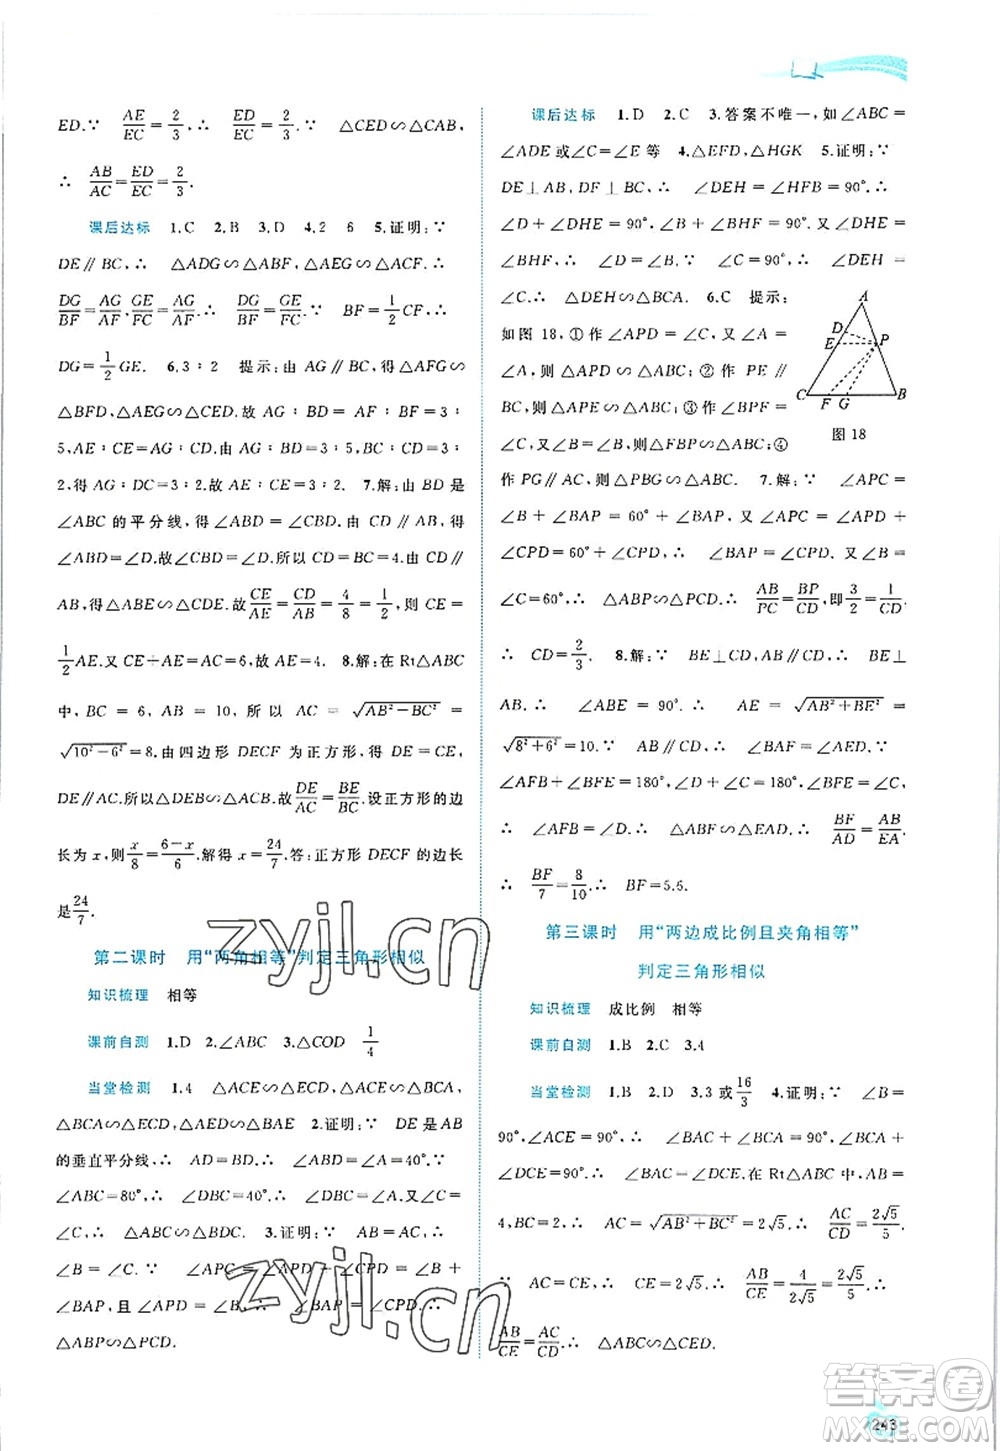 ED.∵ AE/EC=2/3,∴ ED/EC=2/3.∵ △CED∽△CAB,
∴ AB/AC=ED/EC=2/3.
课后达标 1.C 2.B 3.D 4.2 6 5.证明:∵
DE∥BC,∴ △ADG∽△ABF,△AEG∽△ACF.∴
DG/BF=AG/AF,GE/FC=AG/AF.∴ DG/BF=GE/FC.∵ BF=1/2CF,∴
DG=1/2GE. 6.3∶2 提示:由AG∥BD,得△AFG∽
△BFD,△AEG∽△CED.故AG∶BD=AF∶BF=3∶
5,AE∶CE=AG∶CD.由AG∶BD=3∶5,BD∶CD=5∶
2,得AG∶DC=3∶2.故AE∶CE=3∶2. 7.解:由BD是
∠ABC的平分线,得∠ABD=∠CBD.由CD∥AB,得
∠ABD=∠D.故∠CBD=∠D.所以CD=BC=4.由CD∥
AB,得△ABE∽△CDE.故CE/AE=CD/AB=4/8=1/2,故CE=
1/2AE.又CE+AE=AC=6,故AE=4. 8.解:在Rt△ABC
中,BC=6,AB=10,所以AC=√(AB²-BC²)=
√(10²-6²)=8.由四边形DECF为正方形,得DE=CE,
DE∥AC.所以△DEB∽△ACB.故DE/AC=BE/BC.设正方形的边
长为x,则x/8=(6-x)/6.解得x=24/7.答:正方形DECF的边长
是24/7.
第二课时 用“两角相等”判定三角形相似
知识梳理 相等
课前自测 1.D 2.∠ABC 3.△COD 1/4
当堂检测 1.4 △ACE∽△ECD,△ACE∽△BCA,
△BCA∽△ECD,△ABD∽△BAE 2.证明:∵ DE是AB
的垂直平分线,∴ AD=BD.∴ ∠ABD=∠A=40°.∵
∠ABC=80°,∴ ∠DBC=40°.∴ ∠DBC=∠A.又∠C=
∠C,∴ △ABC∽△BDC. 3.证明:∵ AB=AC,∴
∠B=∠C.∵ ∠APC=∠APD+∠CPD=∠B+
∠BAP,且∠APD=∠B,∴ ∠BAP=∠CPD.∴
△ABP∽△PCD.
课后达标 1.D 2.C 3.答案不唯一,如∠ABC=
∠ADE或∠C=∠E等 4.△EFD,△HGK 5.证明:∵
DE⊥AB,DF⊥BC,∴ ∠DEH=∠HFB=90°.∴
∠D+∠DHE=∠B+∠BHF=90°.又∠DHE=
∠BHF,∴ ∠B=∠D.∵ ∠C=90°,∴ ∠DEH=
∠C.∴ △DEH∽△BCA. 6.C 提示:
如图18,①作∠APD=∠C,又∠A=
∠A,则△APD∽△ABC;②作PE∥
BC,则△APE∽△ACB;③作∠BPF=
∠C,又∠B=∠B,则△FBP∽△ABC;④
作PG∥AC,则△PBG∽△ABC. 7.解:∵ ∠APC=
∠ABP+∠BAP=60°+∠BAP,又∠APC=∠APD+
∠CPD=60°+∠CPD,∴ ∠BAP=∠CPD.又∠ABP=
∠C=60°,∴ △ABP∽△PCD.∴ AB/PC=BP/CD,即3/2=1/CD.
∴ CD=2/3. 8.解:∵ BE⊥CD,AB∥CD,∴ BE⊥
AB.∴ ∠ABE=90°.∴ AE=√(AB²+BE²)=
√(8²+6²)=10.∵ AB∥CD,∴ ∠BAF=∠AED.∵
∠AFB+∠BFE=180°,∠D+∠C=180°,∠BFE=∠C,
∴ ∠AFB=∠D.∴ △ABF∽△EAD.∴ BF/AD=AB/EA.
∴ BF/7=8/10.∴ BF=5.6.
A
D
E
P
F
G
C
B
图18
第三课时 用“两边成比例且夹角相等”
判定三角形相似
知识梳理 成比例 相等
课前自测 1.B 2.C 3.4
当堂检测 1.B 2.D 3.3或16/3 4.证明:∵ ∠B=
90°,∠ACE=90°,∴ ∠BAC+∠BCA=90°,∠BCA+
∠DCE=90°.∴ ∠BAC=∠DCE.在Rt△ABC中,AB=
4,BC=2,∴ AC=√(AB²+BC²)=2√5.∴ AC/CD=2√5/5.
∵ AC=CE,∴ CE=2√5.∴ AB/CE=4/2√5=2√5/5.∴
AB/CE=AC/CD.∴ △ABC∽△CED.
zyjl.cn
zyjl.cn
答案圈
MXQE.COM
243